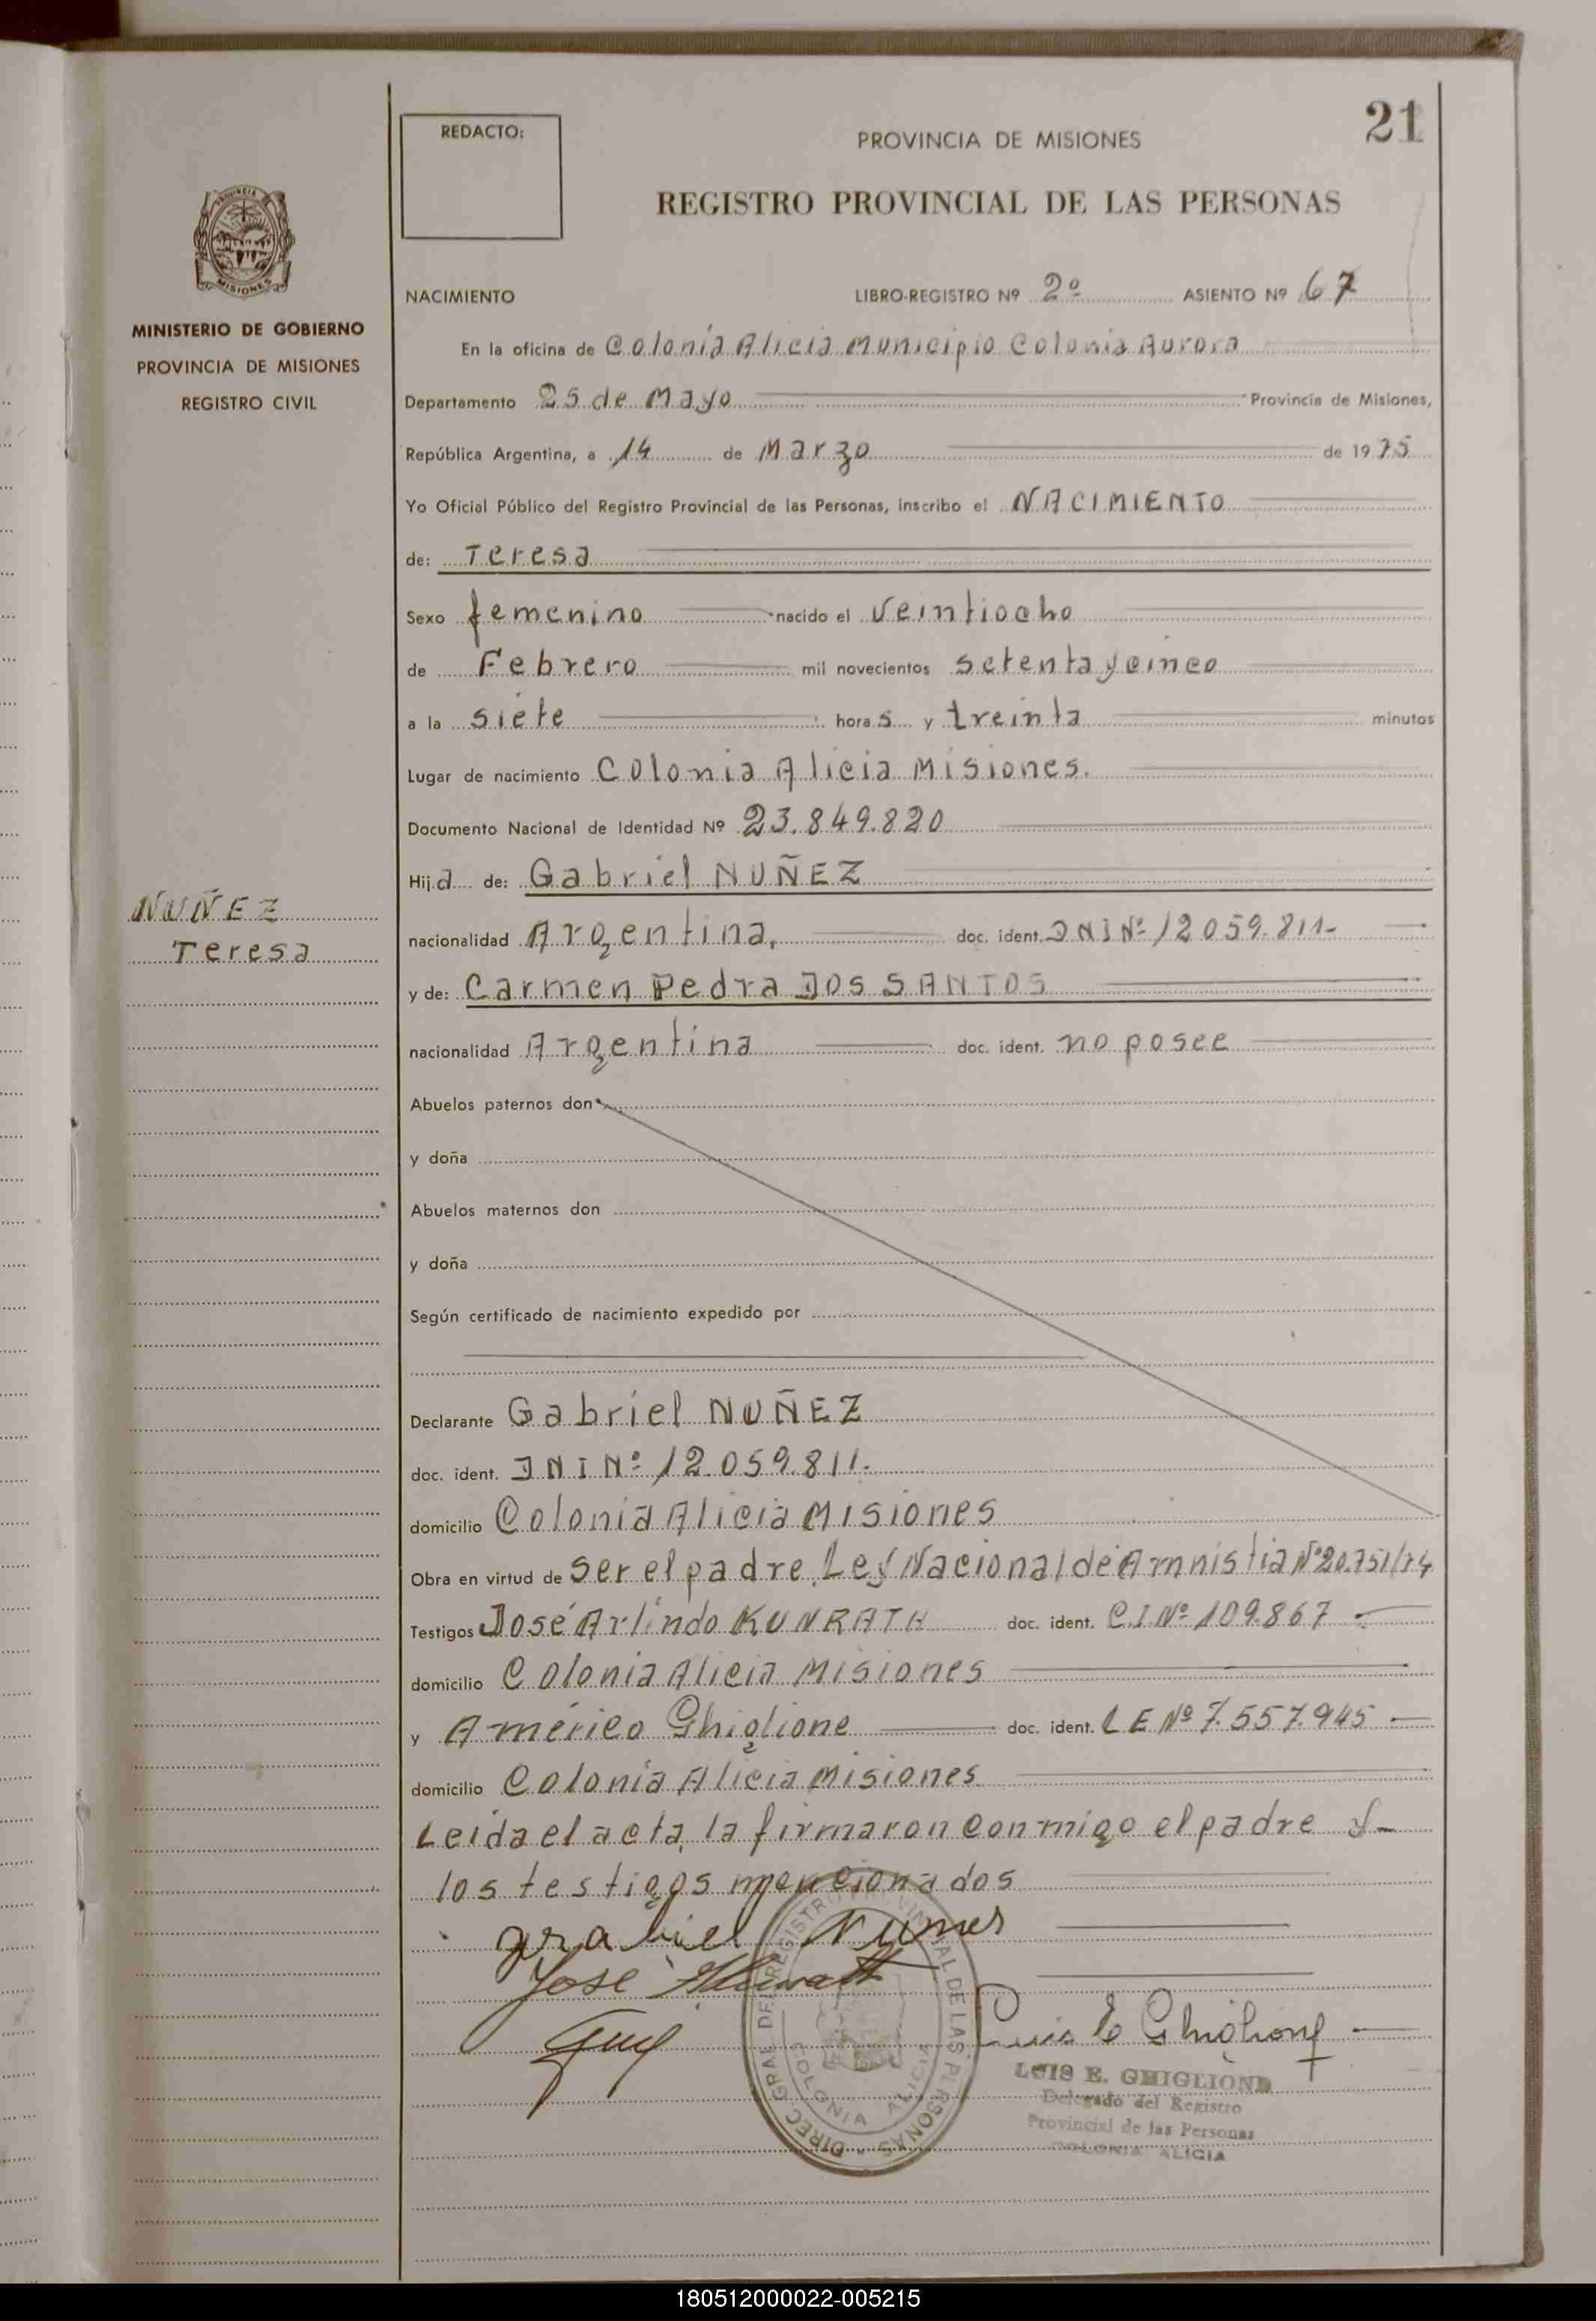 21
REDACTO:
PROVINCIA DE MISIONES
REGISTRO PROVINCIAL DE LAS PERSONAS
PROVINCIA
MISIONES
MINISTERIO DE GOBIERNO
PROVINCIA DE MISIONES
REGISTRO CIVIL
NACIMIENTO LIBRO-REGISTRO Nº 2º ASIENTO Nº 67
En la oficina de Colonia Alicia Municipio Colonia Aurora
Departamento 25 de Mayo Provincia de Misiones,
República Argentina, a 14 de Marzo de 1975
Yo Oficial Público del Registro Provincial de las Personas, inscribo el NACIMIENTO
de: Teresa
Sexo femenino nacido el veintiocho
de Febrero mil novecientos setenta y cinco
a la siete horas y treinta minutos
Lugar de nacimiento Colonia Alicia Misiones.
Documento Nacional de Identidad Nº 23.849.820
Hija de: Gabriel NUÑEZ
NUÑEZ
Teresa
nacionalidad Argentina, doc. ident. DNI Nº 12059.811-
y de: Carmen Pedra DOS SANTOS
nacionalidad Argentina doc. ident. no posee
Abuelos paternos don
y doña
Abuelos maternos don
y doña
Según certificado de nacimiento expedido por
Declarante Gabriel NUÑEZ
doc. ident. DNI Nº 12.059.811.
domicilio Colonia Alicia Misiones
Obra en virtud de ser el padre. Ley Nacional de Amnistia Nº 20.751/74
Testigos José Arlindo KUNRATH doc. ident. C.I. Nº 109.867
domicilio Colonia Alicia Misiones
y Américo Ghiglione doc. ident. LE Nº 7.557.945
domicilio Colonia Alicia Misiones
Leida el acta, la firmaron conmigo el padre y
los testigos mencionados
grabiel Nunes
José
Luis E Ghiglione
DIREC. GRAL. DEL REGISTRO PROVINCIAL DE LAS PERSONAS
COLONIA ALICIA
LUIS E. GHIGLIONE
Delegado del Registro
Provincial de las Personas
COLONIA ALICIA
180512000022-005215